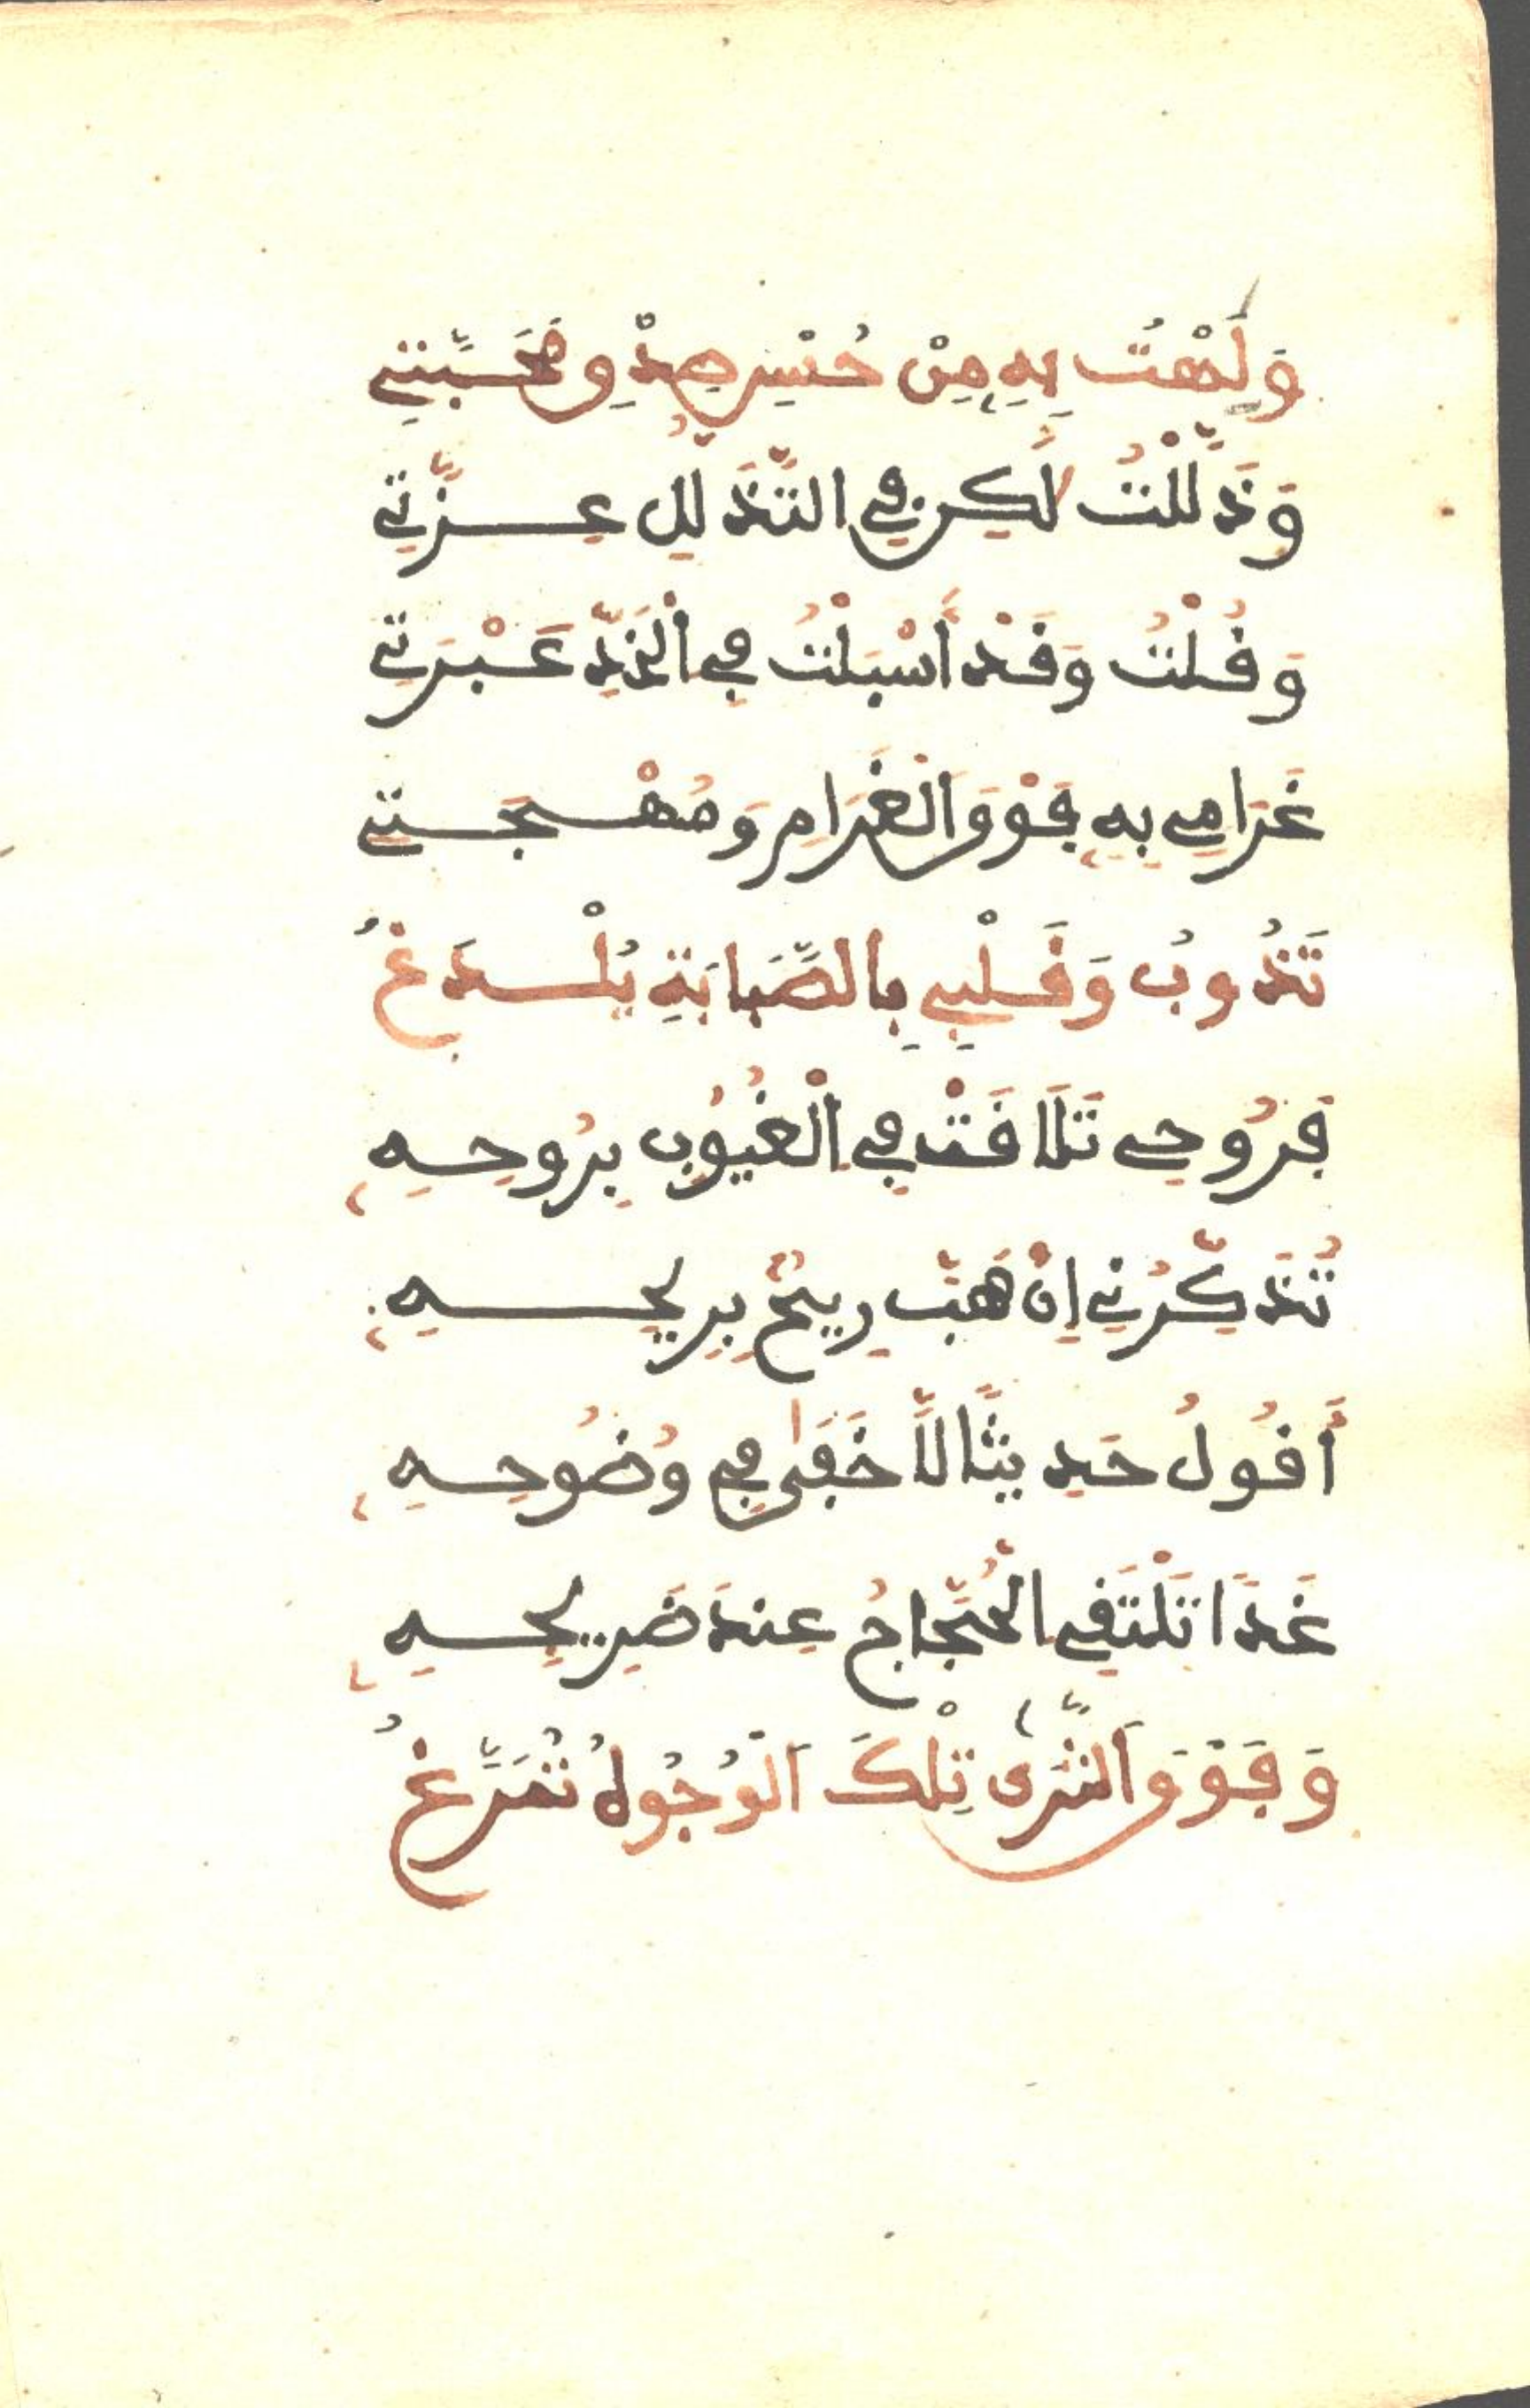 وَلِهْتُ بِهِ مِنْ حُسْنِ صِدْقِ مَحَبَّتِي
وَذَلَّلْتُ لَكِن فِي التَّذَلُّلِ عِزَّتِي
وَقُلْتُ وَقَدْ أَسْبَلْتُ فِي الْخَدِّ عَبْرَتِي
غَرَامِي بِهِ فَوْقَ الْغَرَامِ وَمُهْجَتِي
تَذُوبُ وَقَلْبِي بِالصَّبَابَةِ يُلْدَغُ
فَرُوحِي تَلَاقَتْ فِي الْغُيُوبِ بِرُوحِهِ
تُذَكِّرُنِي إِنْ هَبَّ رِيحٌ بِرِيحِهِ
أَقُولُ حَدِيثًا لَّا خَفَى فِي وُضُوحِهِ
غَدَا تَلْتَقِي الْحُجَّاجُ عِندَ ضَرِيحِهِ
وَفَوْقَ الثَّرَى تِلْكَ الْوُجُوهُ تُمَرَّغُ